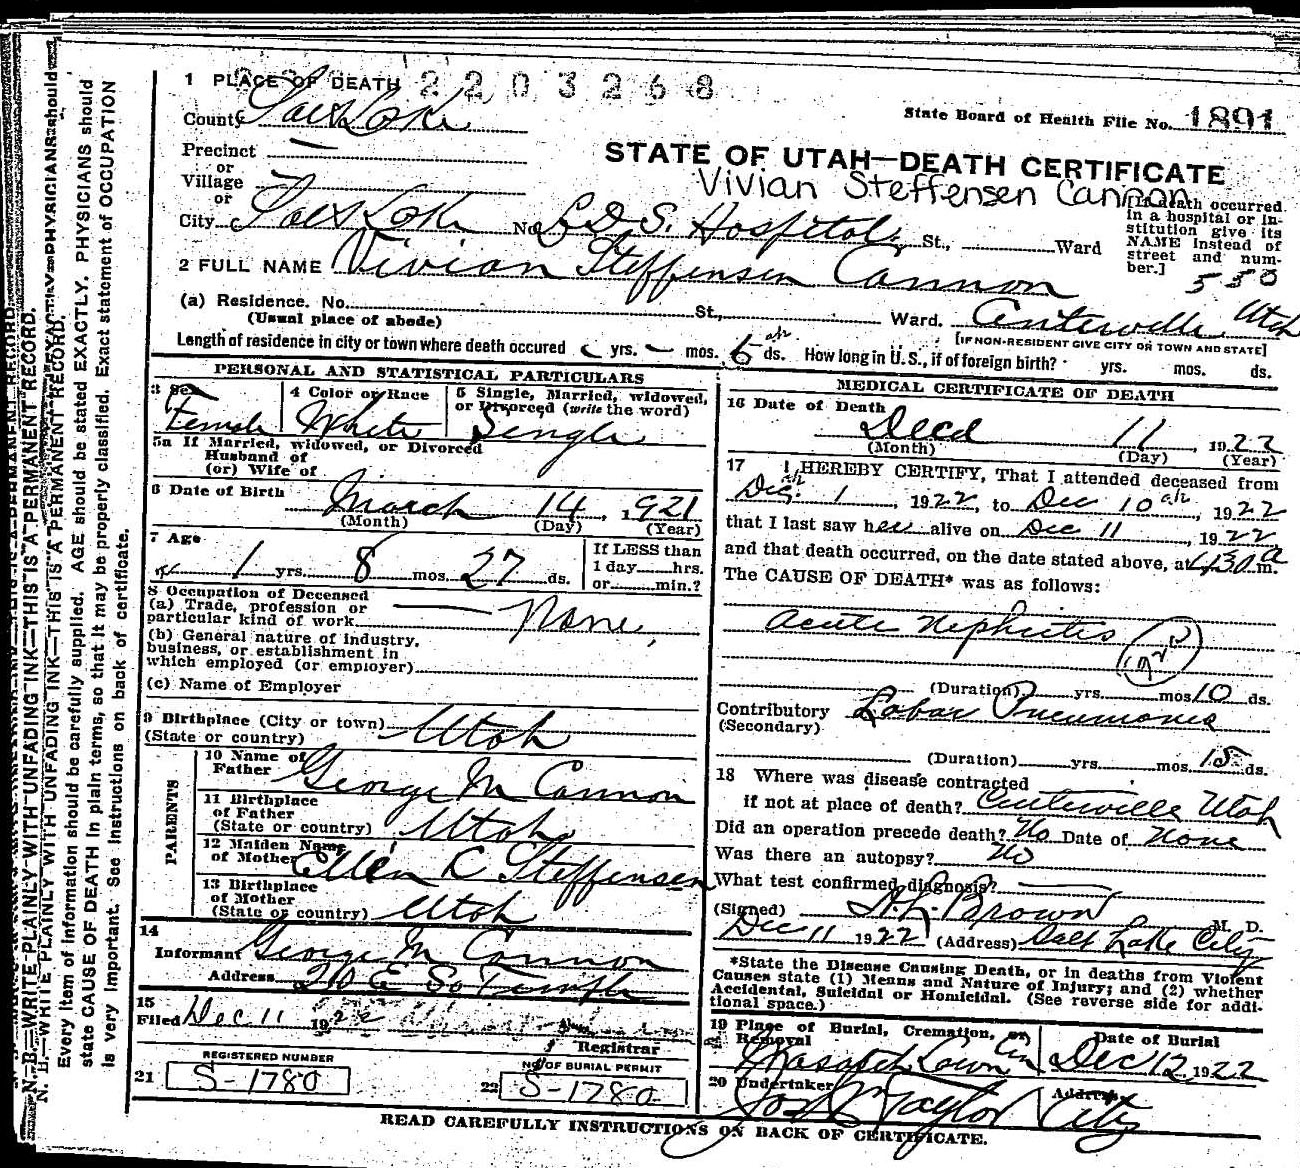 N. B.—WRITE PLAINLY WITH UNFADING INK—THIS IS A PERMANENT RECORD.
Every item of information should be carefully supplied. AGE should be stated EXACTLY. PHYSICIANS should
state CAUSE OF DEATH in plain terms, so that it may be properly classified. Exact statement of OCCUPATION
is very important. See instructions on back of certificate.
1 PLACE OF DEATH 2203268
County Salt Lake
State Board of Health File No. 1891
Precinct
or
Village
or
STATE OF UTAH—DEATH CERTIFICATE
Vivian Steffensen Cannon
City Salt Lake No. L D S. Hospital St., Ward
[If death occurred
in a hospital or in-
stitution give its
NAME instead of
street and num-
ber.]
530
2 FULL NAME Vivian Steffensen Cannon
(a) Residence. No. St., Ward. Centerville Utah
(Usual place of abode)
[IF NON-RESIDENT GIVE CITY OR TOWN AND STATE]
Length of residence in city or town where death occured yrs. — mos. 6 ds. How long in U.S., if of foreign birth? yrs. mos. ds.
PERSONAL AND STATISTICAL PARTICULARS
3 Sex
Female
4 Color or Race
White
5 Single, Married, widowed,
or Divorced (write the word)
Single
5a If Married, widowed, or Divorced
Husband of
(or) Wife of
6 Date of Birth March 14, 1921
(Month) (Day) (Year)
7 Age
1 yrs. 8 mos. 27 ds.
If LESS than
1 day hrs.
or min.?
8 Occupation of Deceased
(a) Trade, profession or
particular kind of work None
(b) General nature of industry,
business, or establishment in
which employed (or employer)
(c) Name of Employer
9 Birthplace (City or town)
(State or country) Utah
PARENTS
10 Name of
Father George M Cannon
11 Birthplace
of Father
(State or country) Utah
12 Maiden Name
of Mother Ellen C Steffensen
13 Birthplace
of Mother
(State or country) Utah
14
Informant George M Cannon
Address 210 E So Temple
15
Filed Dec 11 1922
Registrar
REGISTERED NUMBER
21 S-1780
NO OF BURIAL PERMIT
22 S-1780
MEDICAL CERTIFICATE OF DEATH
16 Date of Death
Decd 11, 1922
(Month) (Day) (Year)
17 I HEREBY CERTIFY, That I attended deceased from
Dec. 1, 1922, to Dec 10, 1922
that I last saw her alive on Dec 11, 1922
and that death occurred, on the date stated above, at 430 a m.
The CAUSE OF DEATH* was as follows:
Acute Nephritis
(Duration) yrs. mos 10 ds.
Contributory Lobar Pneumonia
(Secondary)
(Duration) yrs. mos 15 ds.
18 Where was disease contracted
if not at place of death? Centerville Utah
Did an operation precede death? No Date of None
Was there an autopsy? No
What test confirmed diagnosis?
(Signed) Brown M. D.
Dec 11 1922 (Address) Salt Lake City
*State the Disease Causing Death, or in deaths from Violent
Causes state (1) Means and Nature of Injury; and (2) whether
Accidental, Suicidal or Homicidal. (See reverse side for addi-
tional space.)
19 Place of Burial, Cremation, or
Removal
Wasatch Lawn Cem
Date of Burial
Dec 12, 1922
20 Undertaker
Taylor
Address
City
READ CAREFULLY INSTRUCTIONS ON BACK OF CERTIFICATE.